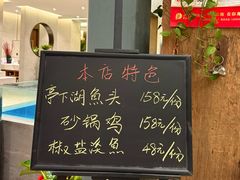 本店特色
亭下湖魚头 158元/份
砂锅鸡 158元/份
椒盐淡魚 48元/份